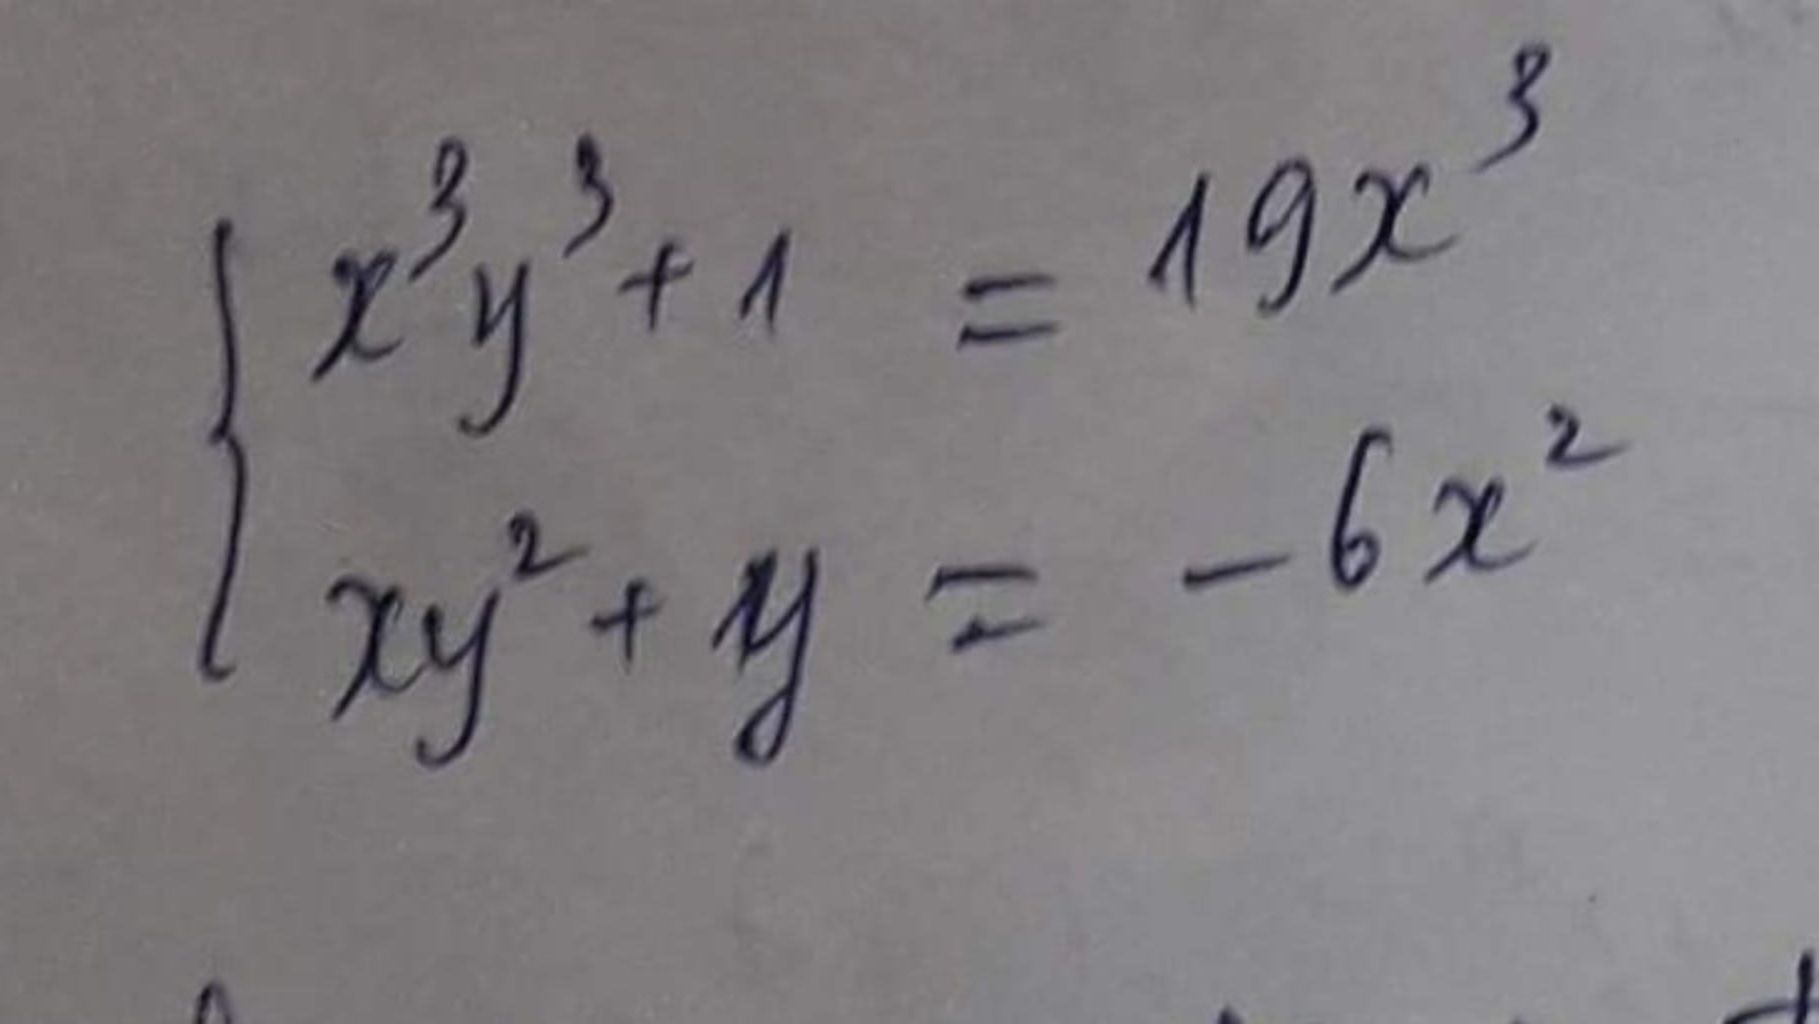 x³y³ + 1 = 19x³
xy² + y = -6x²